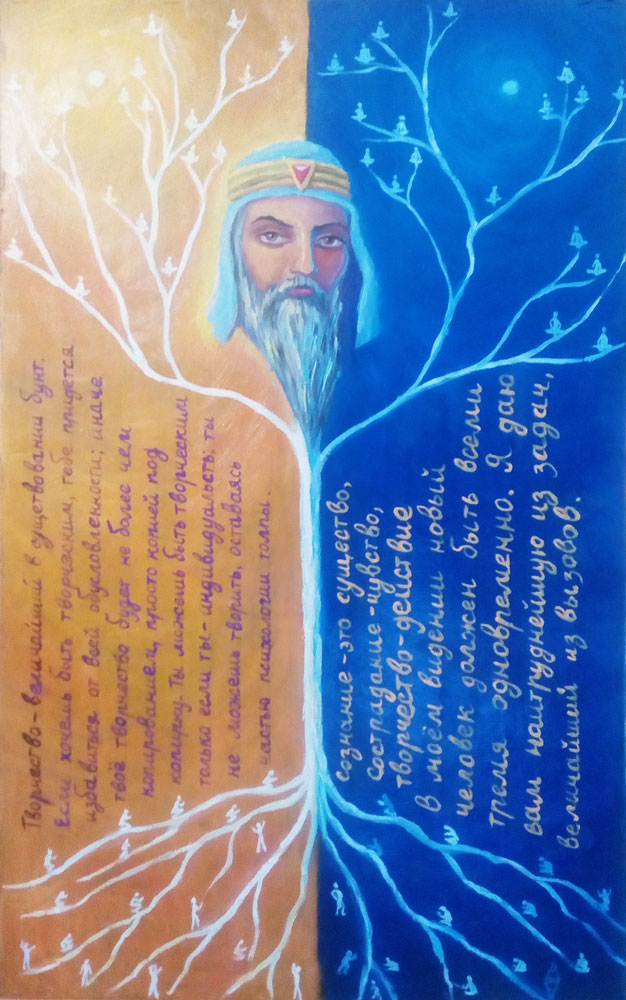 Творчество-величайший в существовании бунт.
Если хочешь быть творческим, тебе придется
избавиться от всей обусловленности; иначе
твоё творчество будет не более чем
копированием, просто копией под
копирку. Ты можешь быть творческим
только если ты-индивидуальность. ты
не можешь творить, оставаясь
частью психологии толпы.
сознание-это существо,
сострадание-чувство,
творчество-действие
В моём видении новый
человек должен быть всеми
тремя одновременно. Я даю
вам наитруднейшую из задач,
величайший из вызовов.